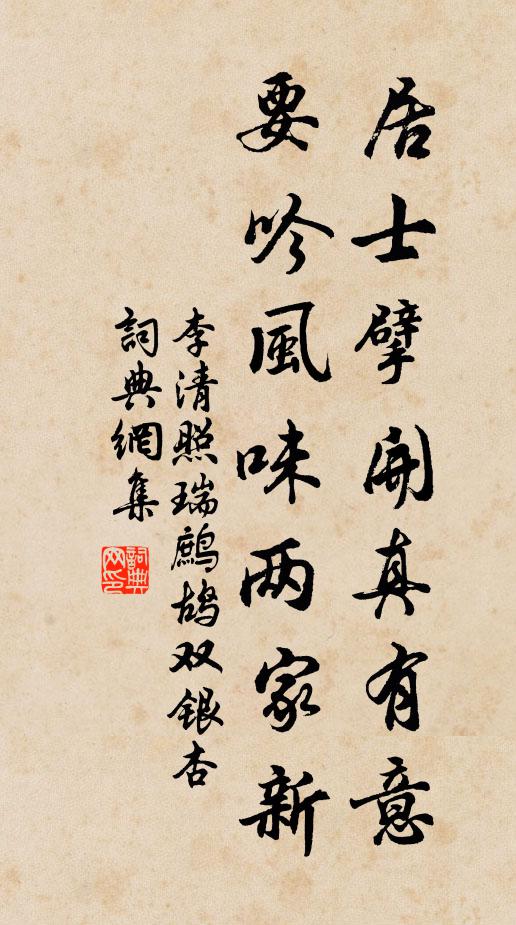 居士擘開真有意
要吟風味两家新
李清照瑞鷓鴣双银杏
詞典網集
詞典
网印